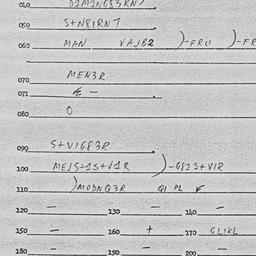 040
050 S+N8IRN7
060 MAN VAJB2 )-FRU )-FR
070 MEN3R
071 —
080 0
090 S+VIG83R
100 MEJS+1S+V1R )-G81S+VIR
110 )MODNQ3R QI PL
120 — 130 — 140 —
150 — 160 + 170 GLIKL
180 — 190 — 200 —